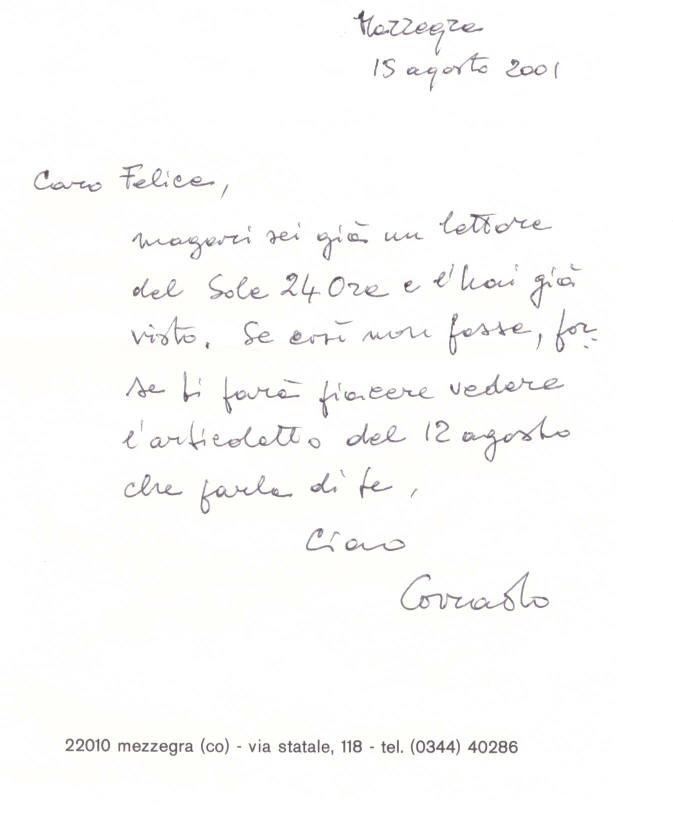 Mezzegra
15 agosto 2001
Caro Felice,
magari sei già un lettore
del Sole 24 Ore e l'hai già
visto. Se così non fosse, for-
se ti farà piacere vedere
l'articoletto del 12 agosto
che parla di te.
Ciao
Corrado
22010 mezzegra (co) - via statale, 118 - tel. (0344) 40286